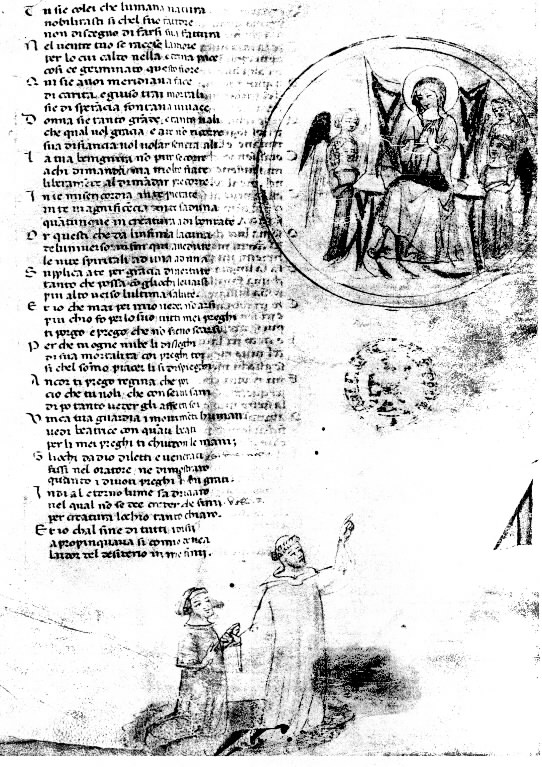 Tu sie colei che lumana natura
nobilitasti si chel suo fattore
non disdegno di farsi sua fattura
Nel ventre tuo se raccese lamore
per lo cui caldo nella eterna pace
cosi e germinato questo fiore
Qui sie a noi meridiana face
di carita, e giuso mortali
sie di speranza fontana vivace
Donna sie tanto grande, e tanto vali
che qual vol gracia e a te non ricorre
sua disianza vol volar senza ali
La tua benignita non pur socorre
a chi dimanda, ma molte fiate
liberamente al dimandar precorre
In te misericordia in te pietate
in te magnificenza in te saduna
quantunque in creatura di bontate
Or questi che da linfima lacuna
de luniverso in fin qui
le vite spiritali ad una ad una
Suplica a te per gracia di vertute
tanto che possa co gliochi levarsi
piu alto verso lultima salute
Et io che mai per mio veder no arsi
piu chio fo per lo suo tutti mei preghi
ti porgo e prego che non sieno scarsi
Perche tu ogne nube li disleghi
di sua mortalita coi preghi toi
si chel somo piacer li si dispieghi
Ancor ti prego regina che poi
cio che tu voli, che conservi sani
di po tanto veder gli affetti soi
Vinca tua guardia i movimenti humani
vedi beatrice con quanti beati
per li mei preghi ti chiudon le mani;
Gliochi da dio diletti e venerati
fissi nel oratore, ne dimostraro
quanto i divoti preghi
Indi al eterno lume sa
nel qual no se dee creder che
per creatura lochio tanto chiaro.
Et io chal fine di tutti
apropinquava si como
lardor del desiderio in me finii.